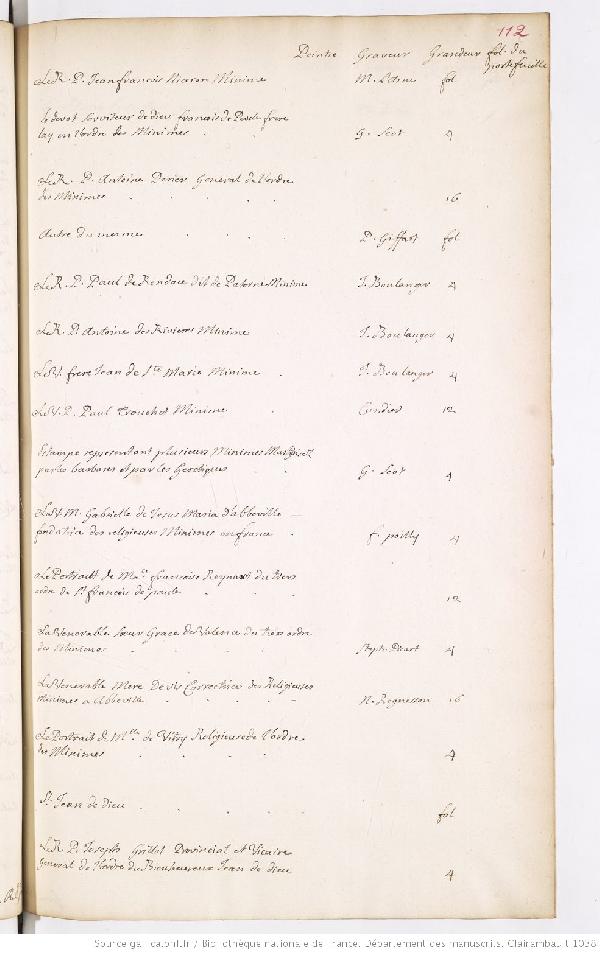 112
Peintre Graveur Grandeur fol. du
portefeuille
Le R. P. Jean francois Minime fol
le devot serviteur de dieu francois de frere
lay en l'ordre des Minimes G. Scot 4
Le R. P. Antoine General de l'ordre
des Minimes 16
Autre du mesme P. Giffart fol
Le R. P. Paul de dit de Paterne Minime J. Boulanger 4
Le R. P. Antoine des Rivieres Minime J. Boulanger 4
Le V. frere Jean de Ste Marie Minime J. Boulanger 4
Le V. P. Paul Trouchet Minime Cordier 12
Estampe representant plusieurs Minimes
par les barbares et par les heretiques G. Scot 4
La V. M. Gabrielle de Jesus Maria d'abbeville
fondatrice des religieuses Minimes en france f. poilly 4
Le Portrait de francoise du tiers
ordre de St francois de paule 12
La Venerable soeur Grace de Valence du tiers ordre
des Minimes Steph. Picart 4
La Venerable Mere Correctrice des Religieuses
Minimes a Abbeville N. Regnesson 16
Le Portrait de Mlle de Vitry Religieuse de l'ordre
des Minimes 4
St Jean de dieu fol
Le R. P. Joseph Grillet Provincial et Vicaire
General de l'ordre du Bienheureux Jean de dieu 4
Source gallica.bnf.fr / Bibliothèque nationale de France. Département des manuscrits. Clairambault 1038